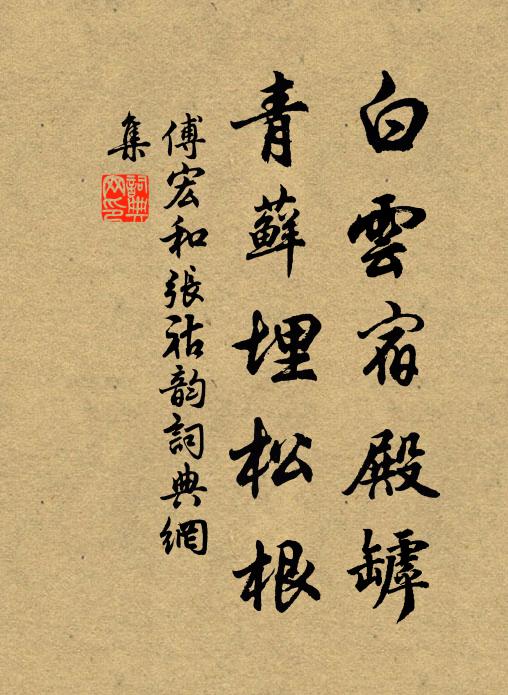 白雲宿殿罅
青蘚埋松根
傅宏和張祜韵詞典網
集
詞典網印